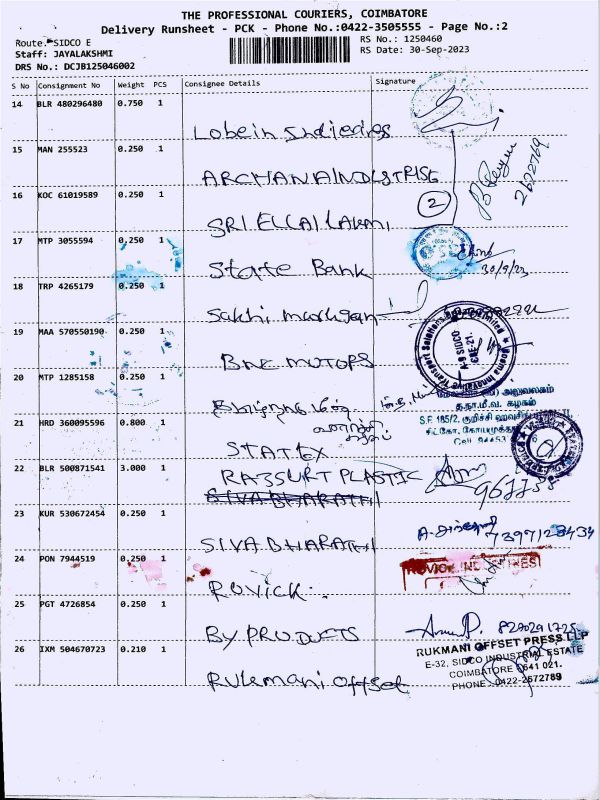 THE PROFESSIONAL COURIERS, COIMBATORE
Delivery Runsheet - PCK - Phone No.:0422-3505555 - Page No.:2
Route: SIDCO E
RS No.: 1250460
Staff: JAYALAKSHMI
RS Date: 30-Sep-2023
DRS No.: DCJB125046002
S No Consignment No Weight PCS Consignee Details Signature
14 BLR 480296480 0.750 1
15 MAN 255523 0.250 1
ARCHANA INDUSTRISE
16 KOC 61019589 0.250 1
2
2622769
SRI ELLAI LAKMI
17 MTP 3055594 0.250 1
State Bank
30/9/23
18 TRP 4265179 0.250 1
Sakhi
19 MAA 570550190 0.250 1
A-9 SIDCO
CBE-21.
BNE MOTORS
20 MTP 1285158 0.250 1
அலுவலகம்
கழகம்
21 HRD 360095596 0.800 1
S.F. 185/2,
STATEX
22 BLR 500871541 3.000 1
PLASTIC
SIVA BHARATHI
23 KUR 530672454 0.250 1
SIVA BHARATHI
24 PON 7944519 0.250 1
ROVICK
25 PGT 4726854 0.250 1
BY PRODUCTS
RUKMANI OFFSET PRESS LLP
26 IXM 504670723 0.210 1
E-32, SIDCO INDUSTRIAL ESTATE
COIMBATORE - 641 021.
PHONE : 0422-2672789
Rukmani offset